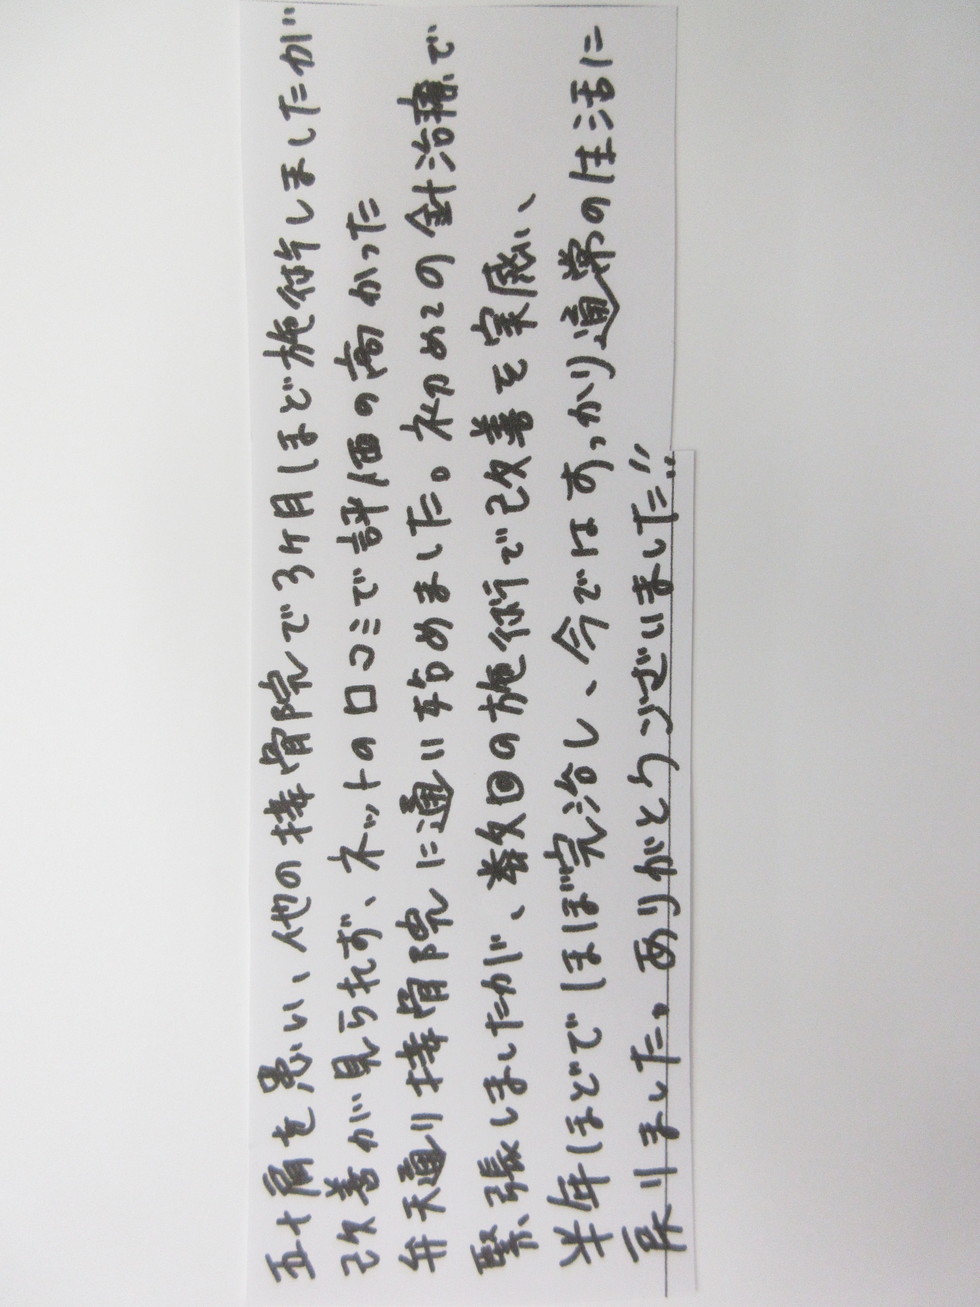 五十肩を患い、他の接骨院で3ヶ月ほど施術しましたが
改善が見られず、ネットの口コミで評価の高かった
弁天通り接骨院に通い始めました。初めての針治療で
緊張しましたが、数回の施術で改善を実感い、
半年ほどでほぼ完治し、今ではすっかり通常の生活に
戻りました。ありがとうございました!!